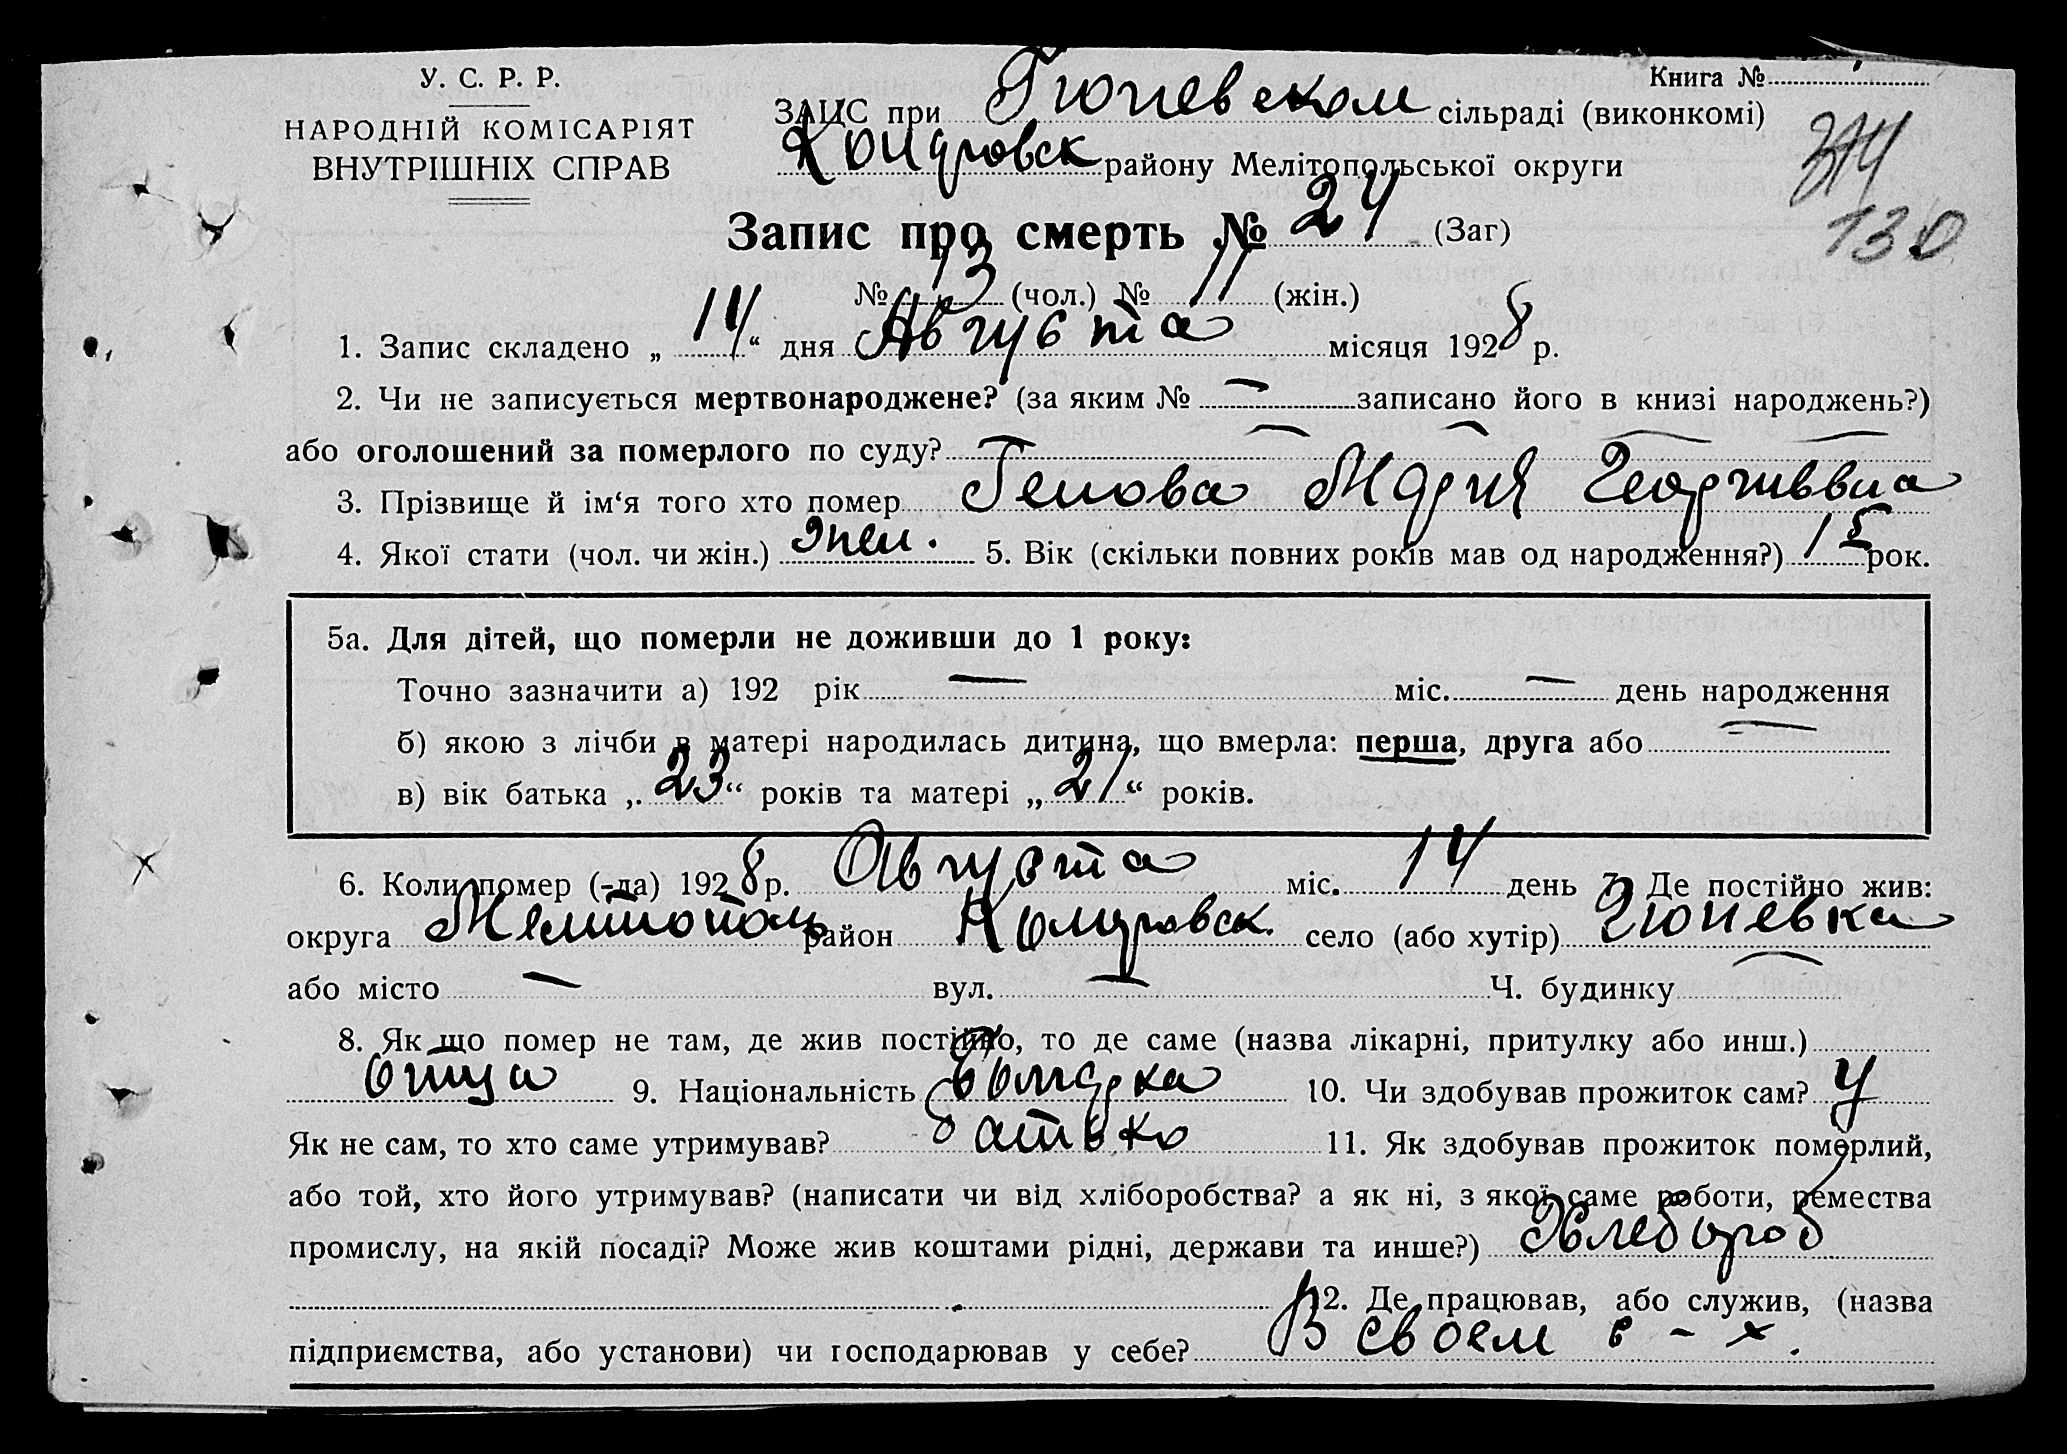 У. С. Р. Р.
НАРОДНІЙ КОМІСАРІЯТ
ВНУТРІШНІХ СПРАВ
Книга №
ЗАЦС при Гюневском сільраді (виконкомі)
району Мелітопольської округи
130
Запис про смерть № 24 (Заг)
№ 13 (чол.) № 11 (жін.)
1. Запис складено „ 14 “ дня Августа місяця 1928 р.
2. Чи не записується мертвонароджене? (за яким № — записано його в книзі народжень?)
або оголошений за померлого по суду? —
3. Прізвище й ім‘я того хто помер Генова Мария
4. Якої стати (чол. чи жін.) жен. 5. Вік (скільки повних років мав од народження?) рок.
5а. Для дітей, що померли не доживши до 1 року:
Точно зазначити а) 192 рік — міс. — день народження
б) якою з лічби в матері народилась дитина, що вмерла: перша, друга або —
в) вік батька „ 23 “ років та матері „ 21 “ років.
6. Коли помер (-ла) 1928 р. Августа міс. 14 день 7. Де постійно жив:
округа Мелитополь район село (або хутір) Гюневка
або місто — вул. — Ч. будинку —
8. Як що помер не там, де жив постійно, то де саме (назва лікарні, притулку або инш.)
9. Національність Болгарка 10. Чи здобував прожиток сам?
Як не сам, то хто саме утримував? батько 11. Як здобував прожиток померлий,
або той, хто його утримував? (написати чи від хліборобства? а як ні, з якої саме роботи, ремества
промислу, на якій посаді? Може жив коштами рідні, держави та инше?) Хлебороб
12. Де працював, або служив, (назва
підприємства, або установи) чи господарював у себе? В своем с-х.